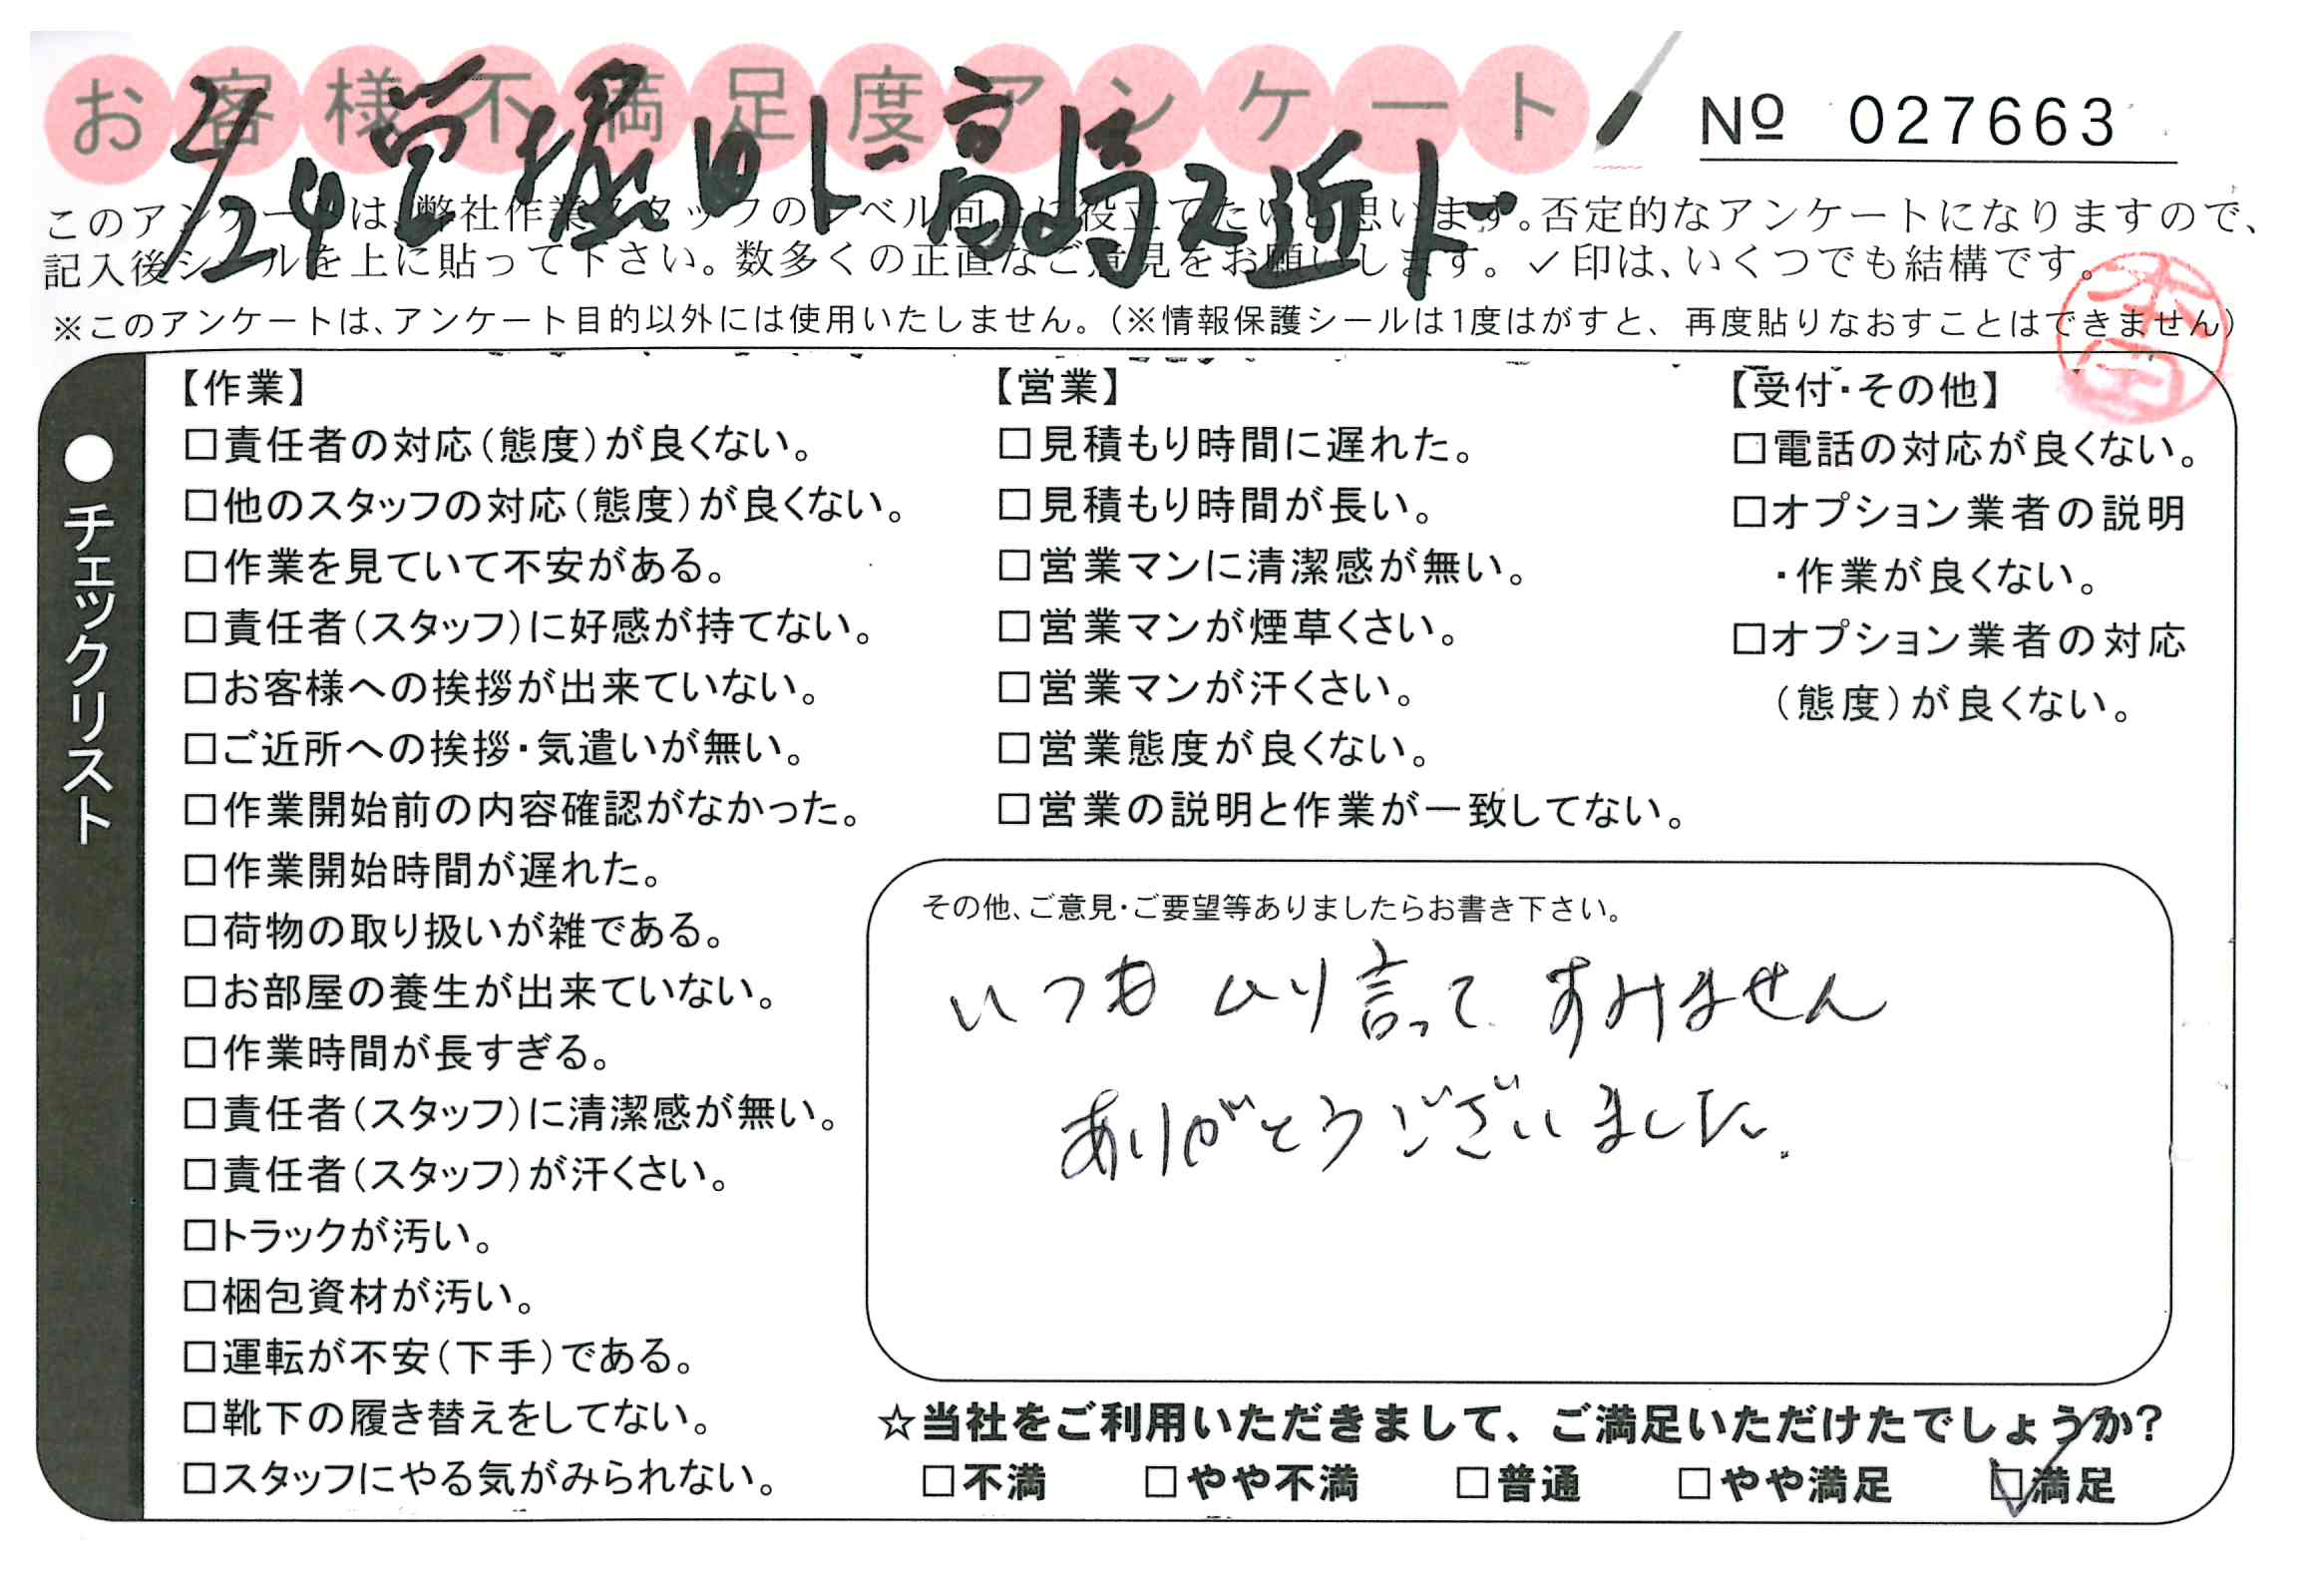 お客様不満足度アンケート
№ 027663
2/24
このアンケートは、弊社作業スタッフのレベル向上に役立てたいと思います。否定的なアンケートになりますので、
記入後シールを上に貼って下さい。数多くの正直なご意見をお願いします。✓印は、いくつでも結構です。
※このアンケートは、アンケート目的以外には使用いたしません。(※情報保護シールは1度はがすと、再度貼りなおすことはできません)
●チェックリスト
【作業】
□責任者の対応(態度)が良くない。
□他のスタッフの対応(態度)が良くない。
□作業を見ていて不安がある。
□責任者(スタッフ)に好感が持てない。
□お客様への挨拶が出来ていない。
□ご近所への挨拶・気遣いが無い。
□作業開始前の内容確認がなかった。
□作業開始時間が遅れた。
□荷物の取り扱いが雑である。
□お部屋の養生が出来ていない。
□作業時間が長すぎる。
□責任者(スタッフ)に清潔感が無い。
□責任者(スタッフ)が汗くさい。
□トラックが汚い。
□梱包資材が汚い。
□運転が不安(下手)である。
□靴下の履き替えをしてない。
□スタッフにやる気がみられない。
【営業】
□見積もり時間に遅れた。
□見積もり時間が長い。
□営業マンに清潔感が無い。
□営業マンが煙草くさい。
□営業マンが汗くさい。
□営業態度が良くない。
□営業の説明と作業が一致してない。
【受付・その他】
□電話の対応が良くない。
□オプション業者の説明
・作業が良くない。
□オプション業者の対応
(態度)が良くない。
その他、ご意見・ご要望等ありましたらお書き下さい。
いつも ムリ言って すみません
ありがとうございました.
☆当社をご利用いただきまして、ご満足いただけたでしょうか?
□不満 □やや不満 □普通 □やや満足 ☑満足